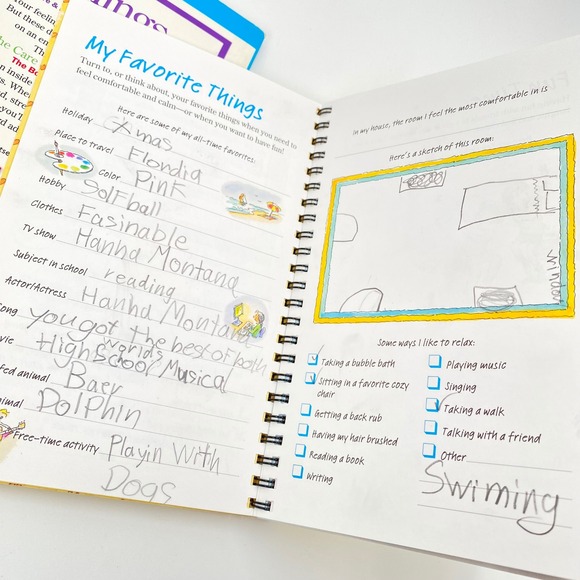 ings
Your feelin
But these d
on an en
Th
the Care
The Bo
n inside
s. Whe
d, stre
you'l
d ad
My Favorite Things
Turn to, or think about, your favorite things when you need to
feel comfortable and calm—or when you want to have fun!
Here are some of my all-time favorites:
Holiday Xmas
Place to travel Flondia
Color Pink
Hobby Solfball
Clothes Fasinable
TV show Hanha Montana
Subject in school reading
Actor/Actress Hanha Montana
ong You got the best of both
worlds
vie High School Musical
fed animal Baer
nimal Dolphin
Free-time activity Playin With
Dogs
In my house, the room I feel the most comfortable in is
Here's a sketch of this room:
window
Some ways I like to relax:
Taking a bubble bath
Sitting in a favorite cozy
chair
Getting a back rub
Having my hair brushed
Reading a book
Writing
Playing music
Singing
Taking a walk
Talking with a friend
Other
Swiming